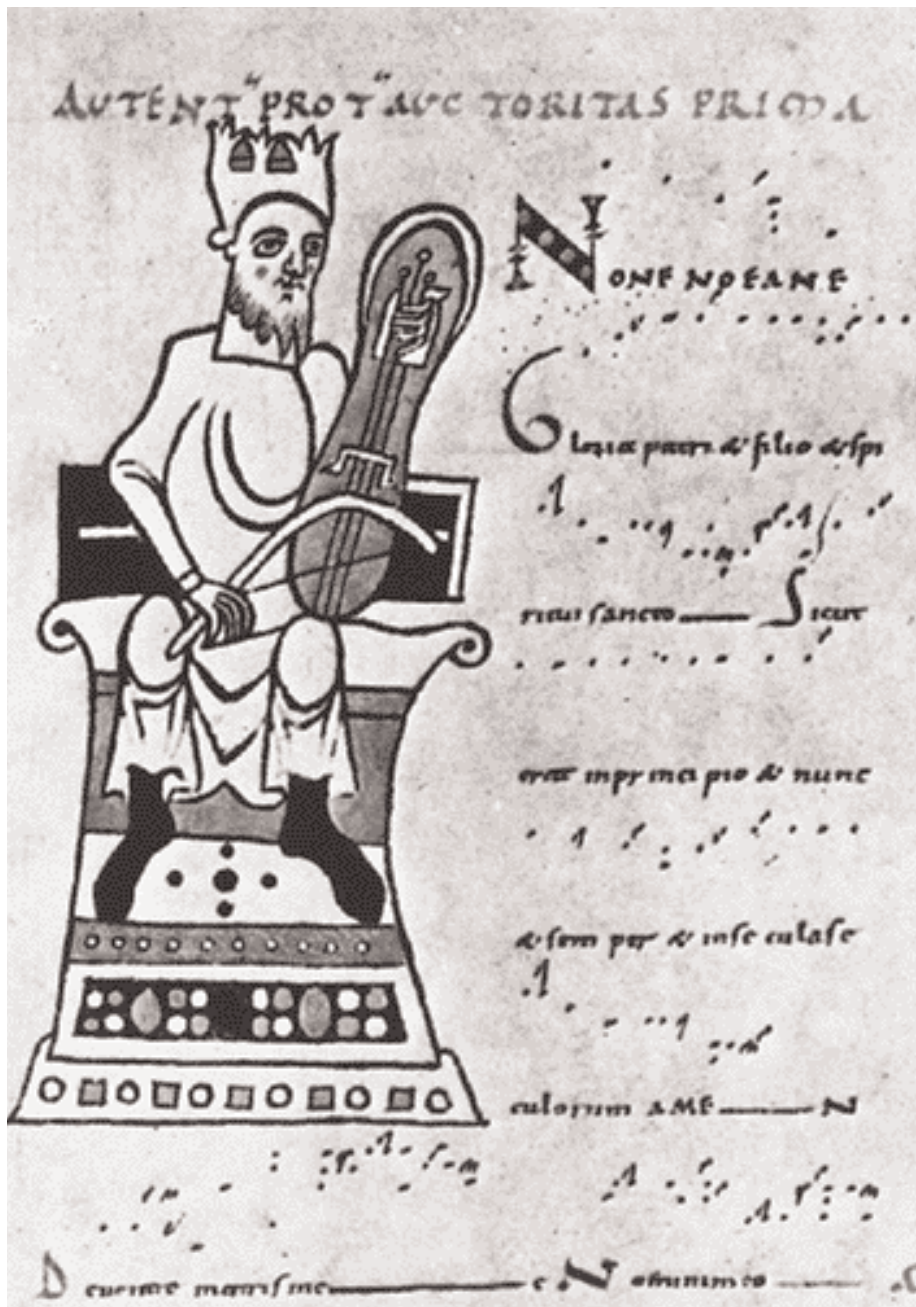 AUTENT PROT AUCTORITAS PRIMA
NONENOEANE
Gloria patri & filio & spi
ritui sancto Sicut
erat inprincipio & nunc
& semper & inseculase
culorum AMEN
Deuentre matrisme e